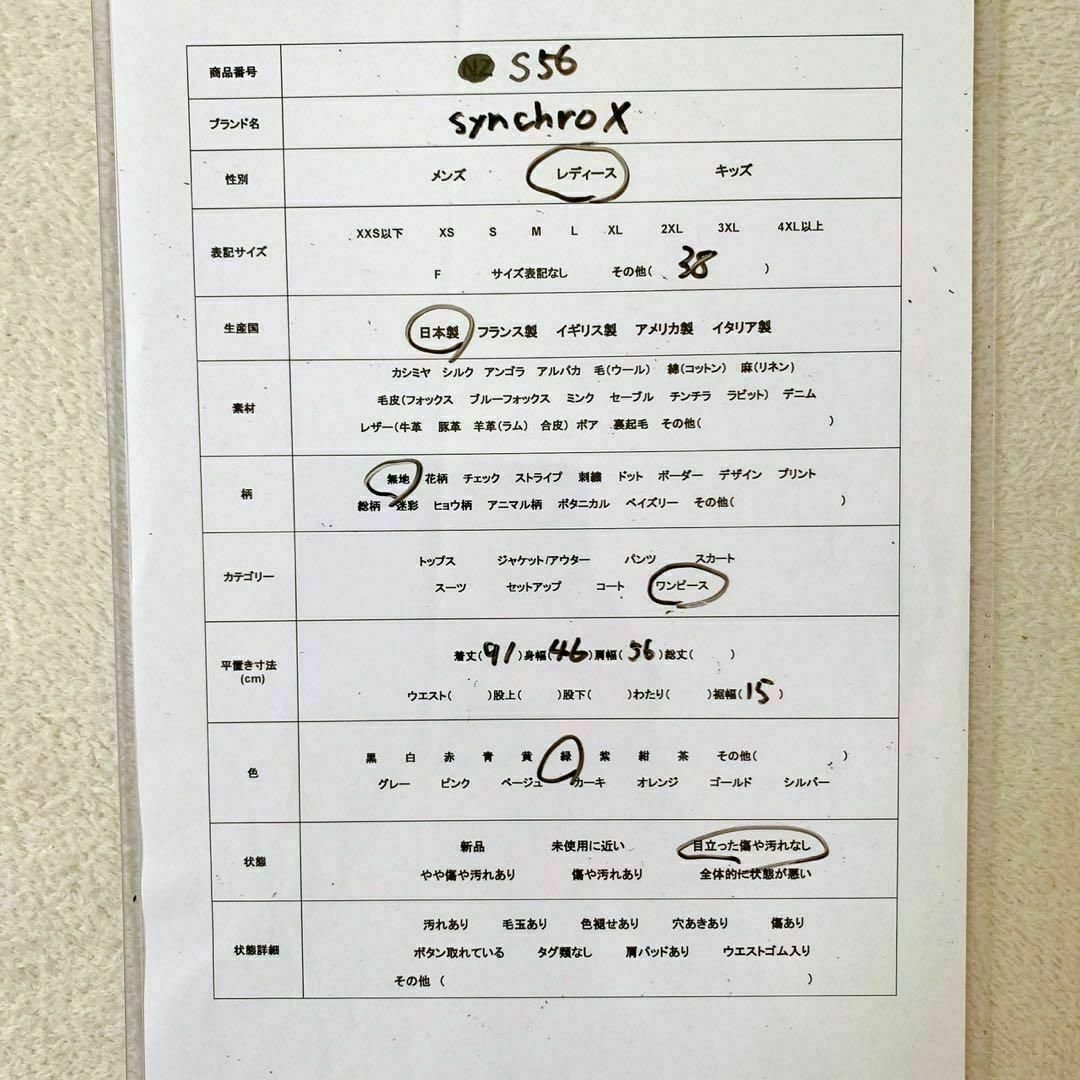 商品番号 NZ S56
ブランド名 synchro X
性別 メンズ レディース キッズ
表記サイズ XXS以下 XS S M L XL 2XL 3XL 4XL以上
F サイズ表記なし その他( 38 )
生産国 日本製 フランス製 イギリス製 アメリカ製 イタリア製
素材 カシミヤ シルク アンゴラ アルパカ 毛(ウール) 綿(コットン) 麻(リネン)
毛皮(フォックス ブルーフォックス ミンク セーブル チンチラ ラビット) デニム
レザー(牛革 豚革 羊革(ラム) 合皮) ボア 裏起毛 その他( )
柄 無地 花柄 チェック ストライプ 刺繍 ドット ボーダー デザイン プリント
総柄 迷彩 ヒョウ柄 アニマル柄 ボタニカル ペイズリー その他( )
カテゴリー トップス ジャケット/アウター パンツ スカート
スーツ セットアップ コート ワンピース
平置き寸法 (cm) 着丈(91)身幅(46)肩幅(56)総丈( )
ウエスト( )股上( )股下( )わたり( )裾幅(15)
色 黒 白 赤 青 黄 緑 紫 紺 茶 その他( )
グレー ピンク ベージュ カーキ オレンジ ゴールド シルバー
状態 新品 未使用に近い 目立った傷や汚れなし
やや傷や汚れあり 傷や汚れあり 全体的に状態が悪い
状態詳細 汚れあり 毛玉あり 色褪せあり 穴あきあり 傷あり
ボタン取れている タグ類なし 肩パッドあり ウエストゴム入り
その他 ( )